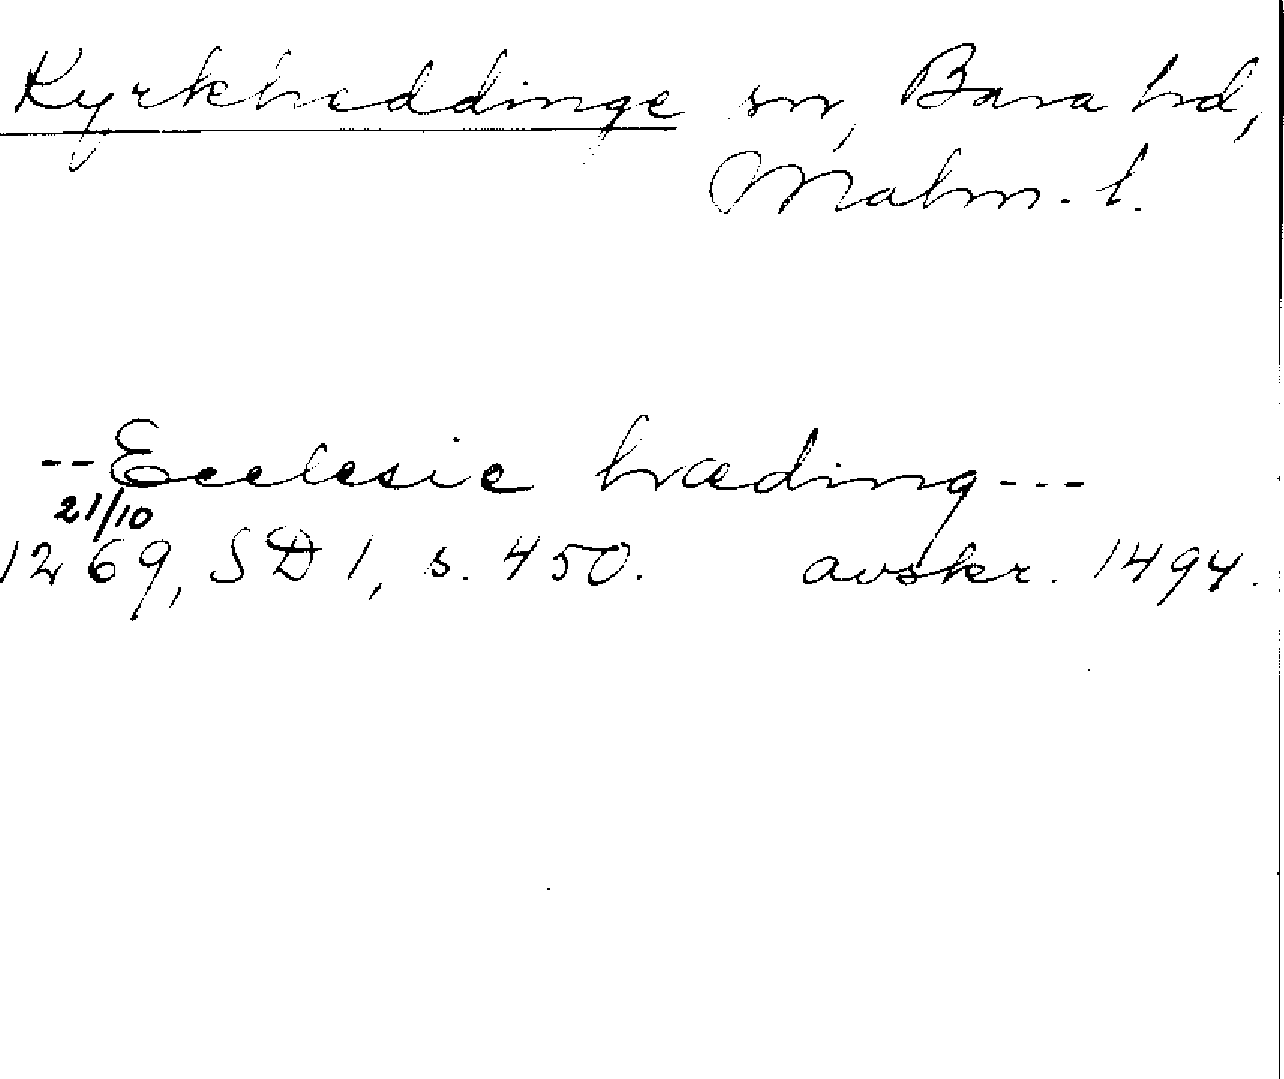 Kyrkheddinge sn, Bara hd,
Malm. l.
--Ecclesie hæding---
21/10
1269, SD 1, s. 450. avskr. 1494.